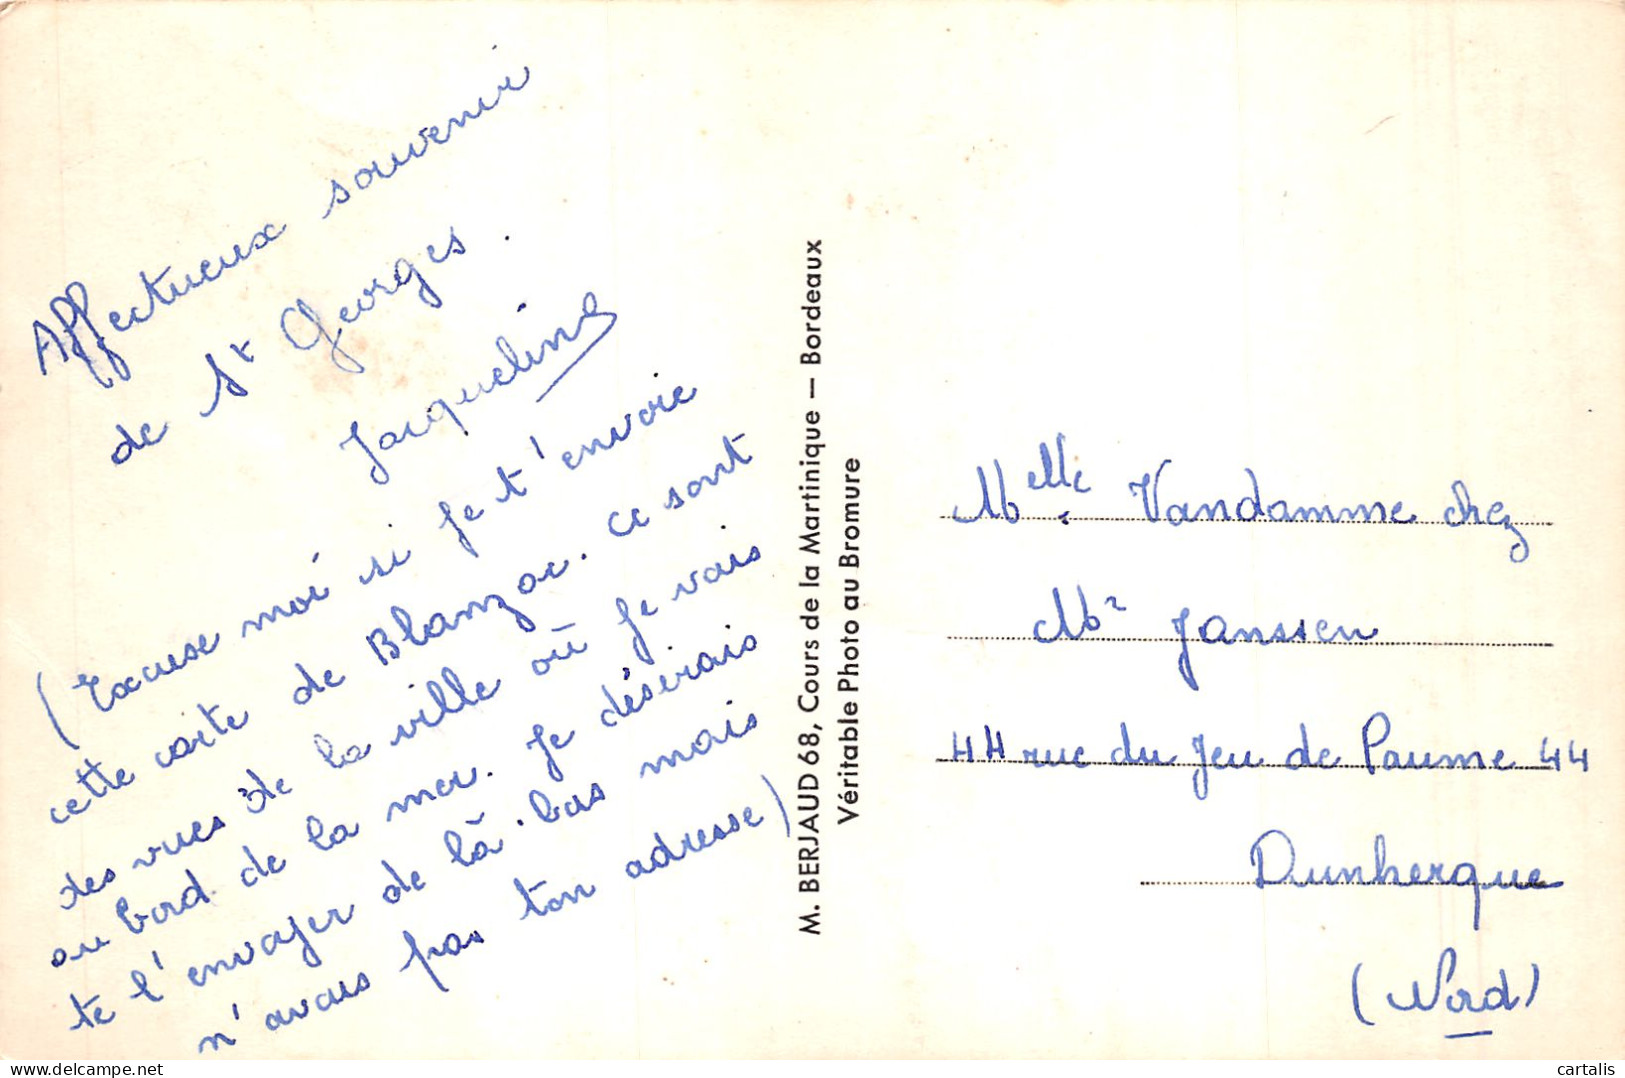 Affectueux souvenir
de St Georges.
Jacqueline
(Excuse moi si je t'envoie
cette carte de Blanzac. ce sont
des vues de la ville où je vais
au bord de la mer. Je désirais
te l'envoyer de là-bas mais
n'avais pas ton adresse)
M. BERJAUD 68, Cours de la Martinique — Bordeaux
Véritable Photo au Bromure
Melle Vandamme chez
Mr Janssen
44 rue du Jeu de Paume 44
Dunkerque
(Nord)
cartalis